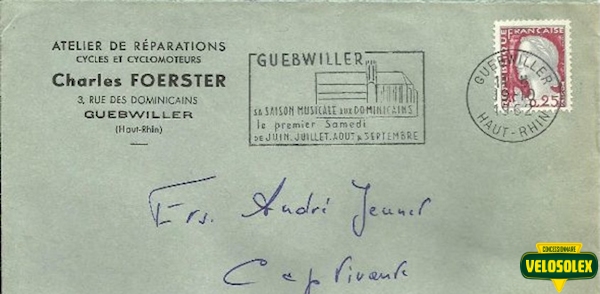 ATELIER DE RÉPARATIONS
CYCLES ET CYCLOMOTEURS
Charles FOERSTER
3, RUE DES DOMINICAINS
GUEBWILLER
(Haut-Rhin)
GUEBWILLER
SA SAISON MUSICALE AUX DOMINICAINS
le premier Samedi
DE JUIN, JUILLET, AOUT & SEPTEMBRE
GUEBWILLER
HAUT-RHIN
FRANÇAISE
0,25
Ets. André Jeunet
CONCESSIONNAIRE
VELOSOLEX